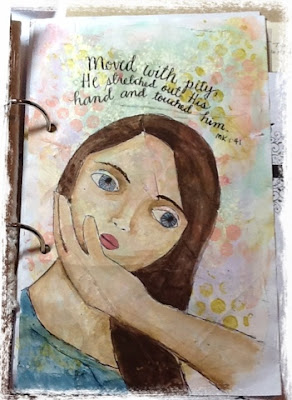 Moved with pity,
He stretched out His
hand and touched him.